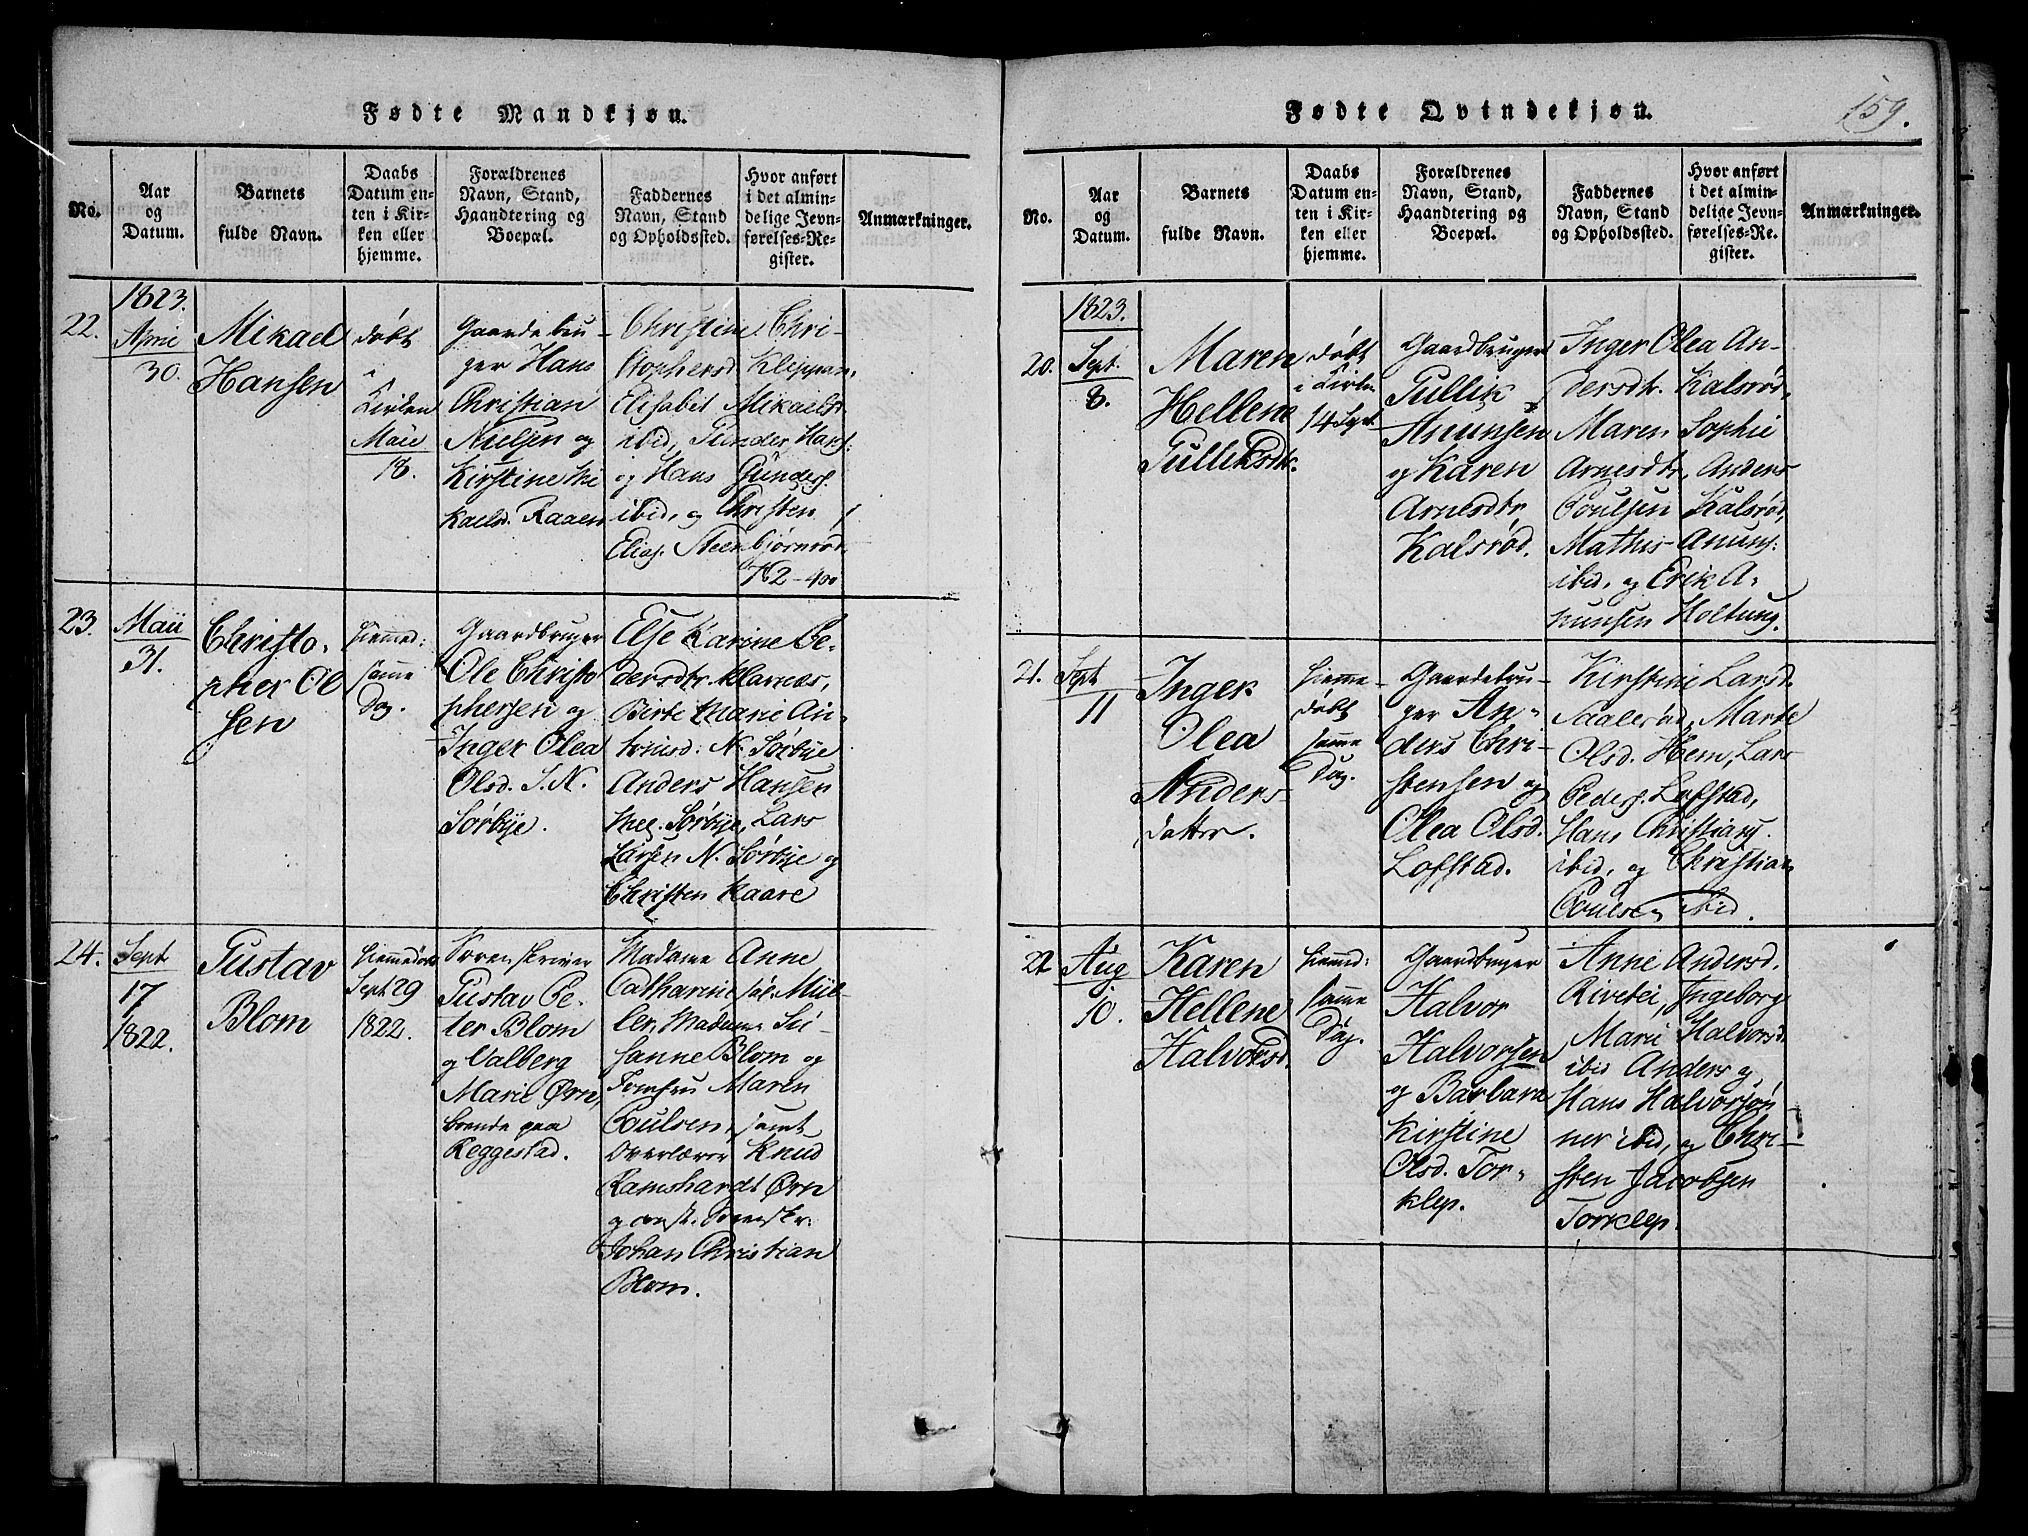 Fødte Mandkjøn.
No.
Aar
og
Datum.
Barnets
fulde Navn.
Daabs
Datum en-
ten i Kir-
ken eller
hjemme.
Forældrenes
Navn, Stand,
Haandtering og
Boepæl.
Faddernes
Navn, Stand
og Opholdssted.
Hvor anført
i det almin-
delige Jevn-
førelses-Re-
gister.
Anmærkninger.
22.
1823.
April
30.
Mikael
Hansen
døbt
i
Kirken
Maii
18.
Gaardebru-
ger Hans
Christian
Nielsen og
Kirstine Mi
kaelsd. Raaen
Christine Chri-
stophersd Klippan,
Elisabet Mikaelsd.
ibid, Gunder Hans:
og Hans Gunders.
ibid, og Christen
Elias. Steenbjørnrød.
23.
Maii
31.
Christo-
pher Ol
sen
hiemmed:
samme
Dag.
Gaardbruger
Ole Christo
phersen og
Inger Olea
Olsd. S. N.
Sørbye.
Else Karine Pe-
dersdtr. Klarnæs,
Birte Marie An-
N. Sørbye
Anders Hansen
Mel. Sørbye, Lars
Larsen N. Sørbye og
Christen Kaare
24.
Sept
17
1822.
Gustav
Blom
hiemmedøbt
Sept 29
1822.
Sorenskriver
Gustav Pe-
ter Blom
og Valberg
Marie Ørn,
boende paa
Reggestad.
Madame Anne
Catharine sal. Mül-
ler, Madame Su-
sanne Blom og
Jomfru Maren
Poulsen, samt
Overlærer Knud
Ramshardt Ørn
og const. Sorenskr:
Johan Christian
Blom.
Fødte Qvindekjøn.
159.
No.
Aar
og
Datum.
Barnets
fulde Navn.
Daabs
Datum en-
ten i Kir-
ken eller
hjemme.
Forældrenes
Navn, Stand,
Haandtering og
Boepæl.
Faddernes
Navn, Stand
og Opholdssted.
Hvor anført
i det almin-
delige Jevn-
førelses-Re-
gister.
Anmærkninger.
1823.
20.
Sept.
8.
Maren
Hellene
Gulliksdtr.
døbt
i Kirken
14 Sept
Gaardbruger
Gullik
Anunsen
og Karen
Arnesdtr
Kalsrød.
Inger Olea An-
dersdtr. Kalsrød,
Maren Sophie
Arnesdtr, Anders
Poulsen Kalsrød,
Mathis Anuns:
ibid, og Erik A-
nunsen Holtung.
21.
Sept
11
Inger
Olea
Anders-
datter.
hiemme-
døbt
samme
Dag.
Gaardebru-
ger An-
ders Chri-
stensen og
Olea Olsd.
Lofstad.
Kirstine Larsd.
Saalesrød, Marte
Olsd. Hem, Lars
Peders. Lofstad,
Hans Christians.
ibid, og Christian
Poulsen ibid.
22
Aug
10.
Karen
Hellene
Halvorsd.
hiemd:
samme
Dag.
Gaardbruger
Halvor
Halvorsen
og Barbara
Kirstine
Olsd. Tor-
klep.
Anne Andersd.
Rivetei, Ingeborg
Marie Halvorsd.
ibid Anders og
Hans Halvorsøn
ner ibid, og Chri-
sten Jacobsen
Torklep.